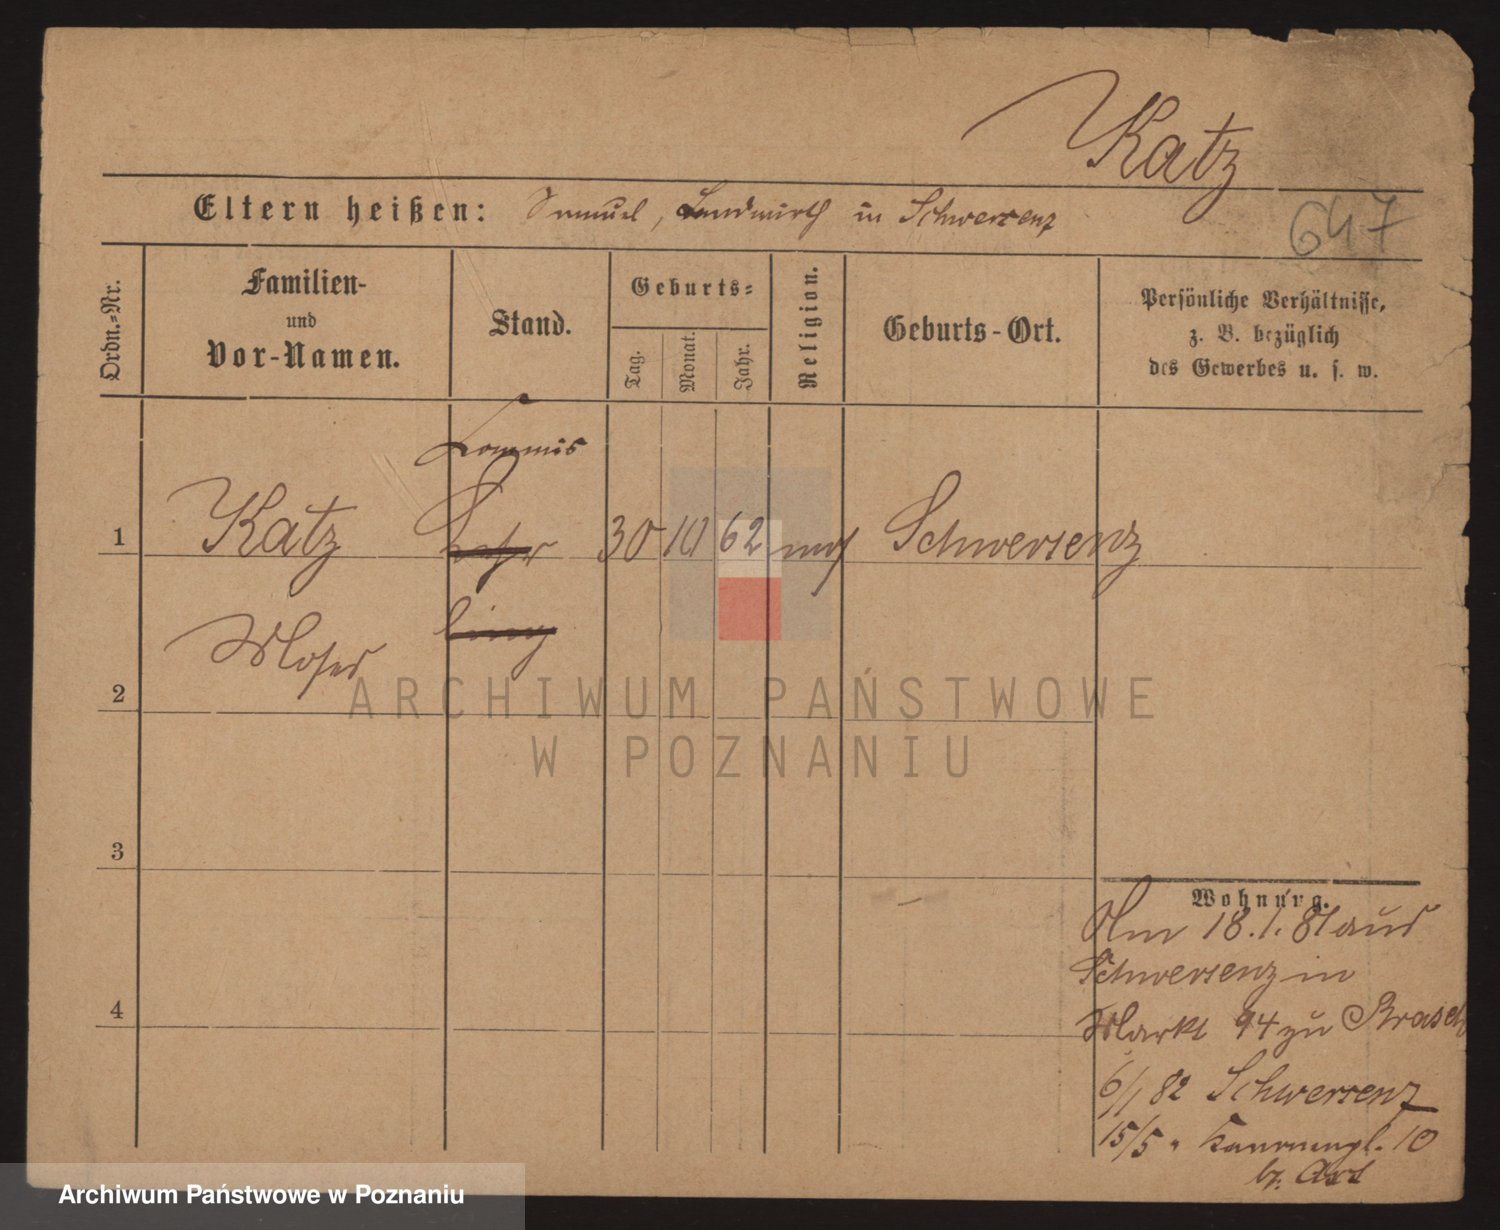 Katz
Eltern heißen: Samuel, Landwirth in Schwersenz
647
Ordn.-Nr.
Familien-
und
Vor-Namen.
Stand.
Geburts-
Tag.
Monat.
Jahr.
Religion.
Geburts-Ort.
Persönliche Verhältnisse,
z. B. bezüglich
des Gewerbes u. s. w.
Commis
1 Katz Lehr 30 10 62 mos Schwersenz
ling
Moses
2
ARCHIWUM PAŃSTWOWE
W POZNANIU
3
Wohnung.
Am 18.1.81 aus
Schwersenz in
4
Markt 94 zu Brasch
6/1 82 Schwersenz
15/5 " 10
bz.
Archiwum Państwowe w Poznaniu